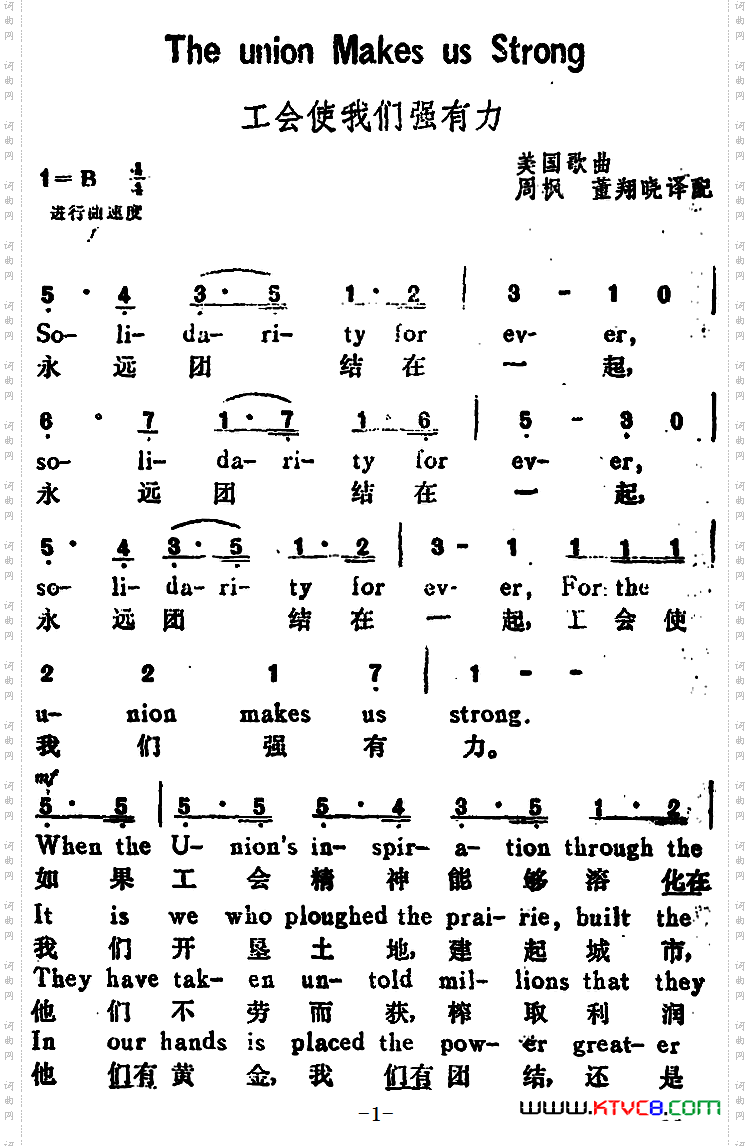 The union Makes us Strong
工会使我们强有力
美国歌曲
1=B 4/4
周枫 董翔晓译配
进行曲速度
f
5· 4 3· 5 1· 2 | 3 - 1 0 |
So- li- da- ri- ty for ev- er,
永远团结在一起,
6· 7 1· 7 1· 6 | 5 - 3 0 |
so- li- da- ri- ty for ev- er,
永远团结在一起,
5· 4 3· 5 1· 2 | 3 - 1 1 1 1
so- li- da- ri- ty for ev- er, For the
永远团结在一起, 工会使
2 2 1 7 | 1 - -
u- nion makes us strong.
我们强有力。
mf
5· 5 | 5· 5 5· 4 3· 5 1· 2 |
When the U- nion's in- spir- a- tion through the
如果工会精神能够溶化在
It is we who ploughed the prai- rie, built the
我们开垦土地, 建起城市,
They have tak- en un- told mil- lions that they
他们不劳而获, 榨取利润
In our hands is placed the pow- er great- er
他们有黄金, 我们有团结, 还是
-1-
www.KTVC8.com
词曲网